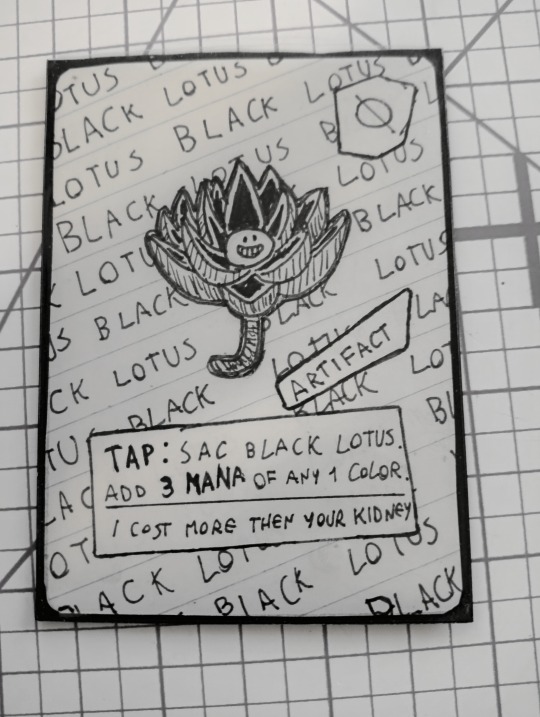 OTUS
BLACK LOTUS
LOTUS BLACK LOTUS
BLACK LOTUS B L
K LOTU LOTUS
US BLACK BLACK
CK LOTUS LACK LOTUS
TU BLACK LOTU LA
LAC BLACK LOT
BL
ARTIFACT
TAP: SAC BLACK LOTUS.
ADD 3 MANA OF ANY 1 COLOR.
I COST MORE THEN YOUR KIDNEY
OT LOTU US
LACK BLACK LOTUS
BLACK